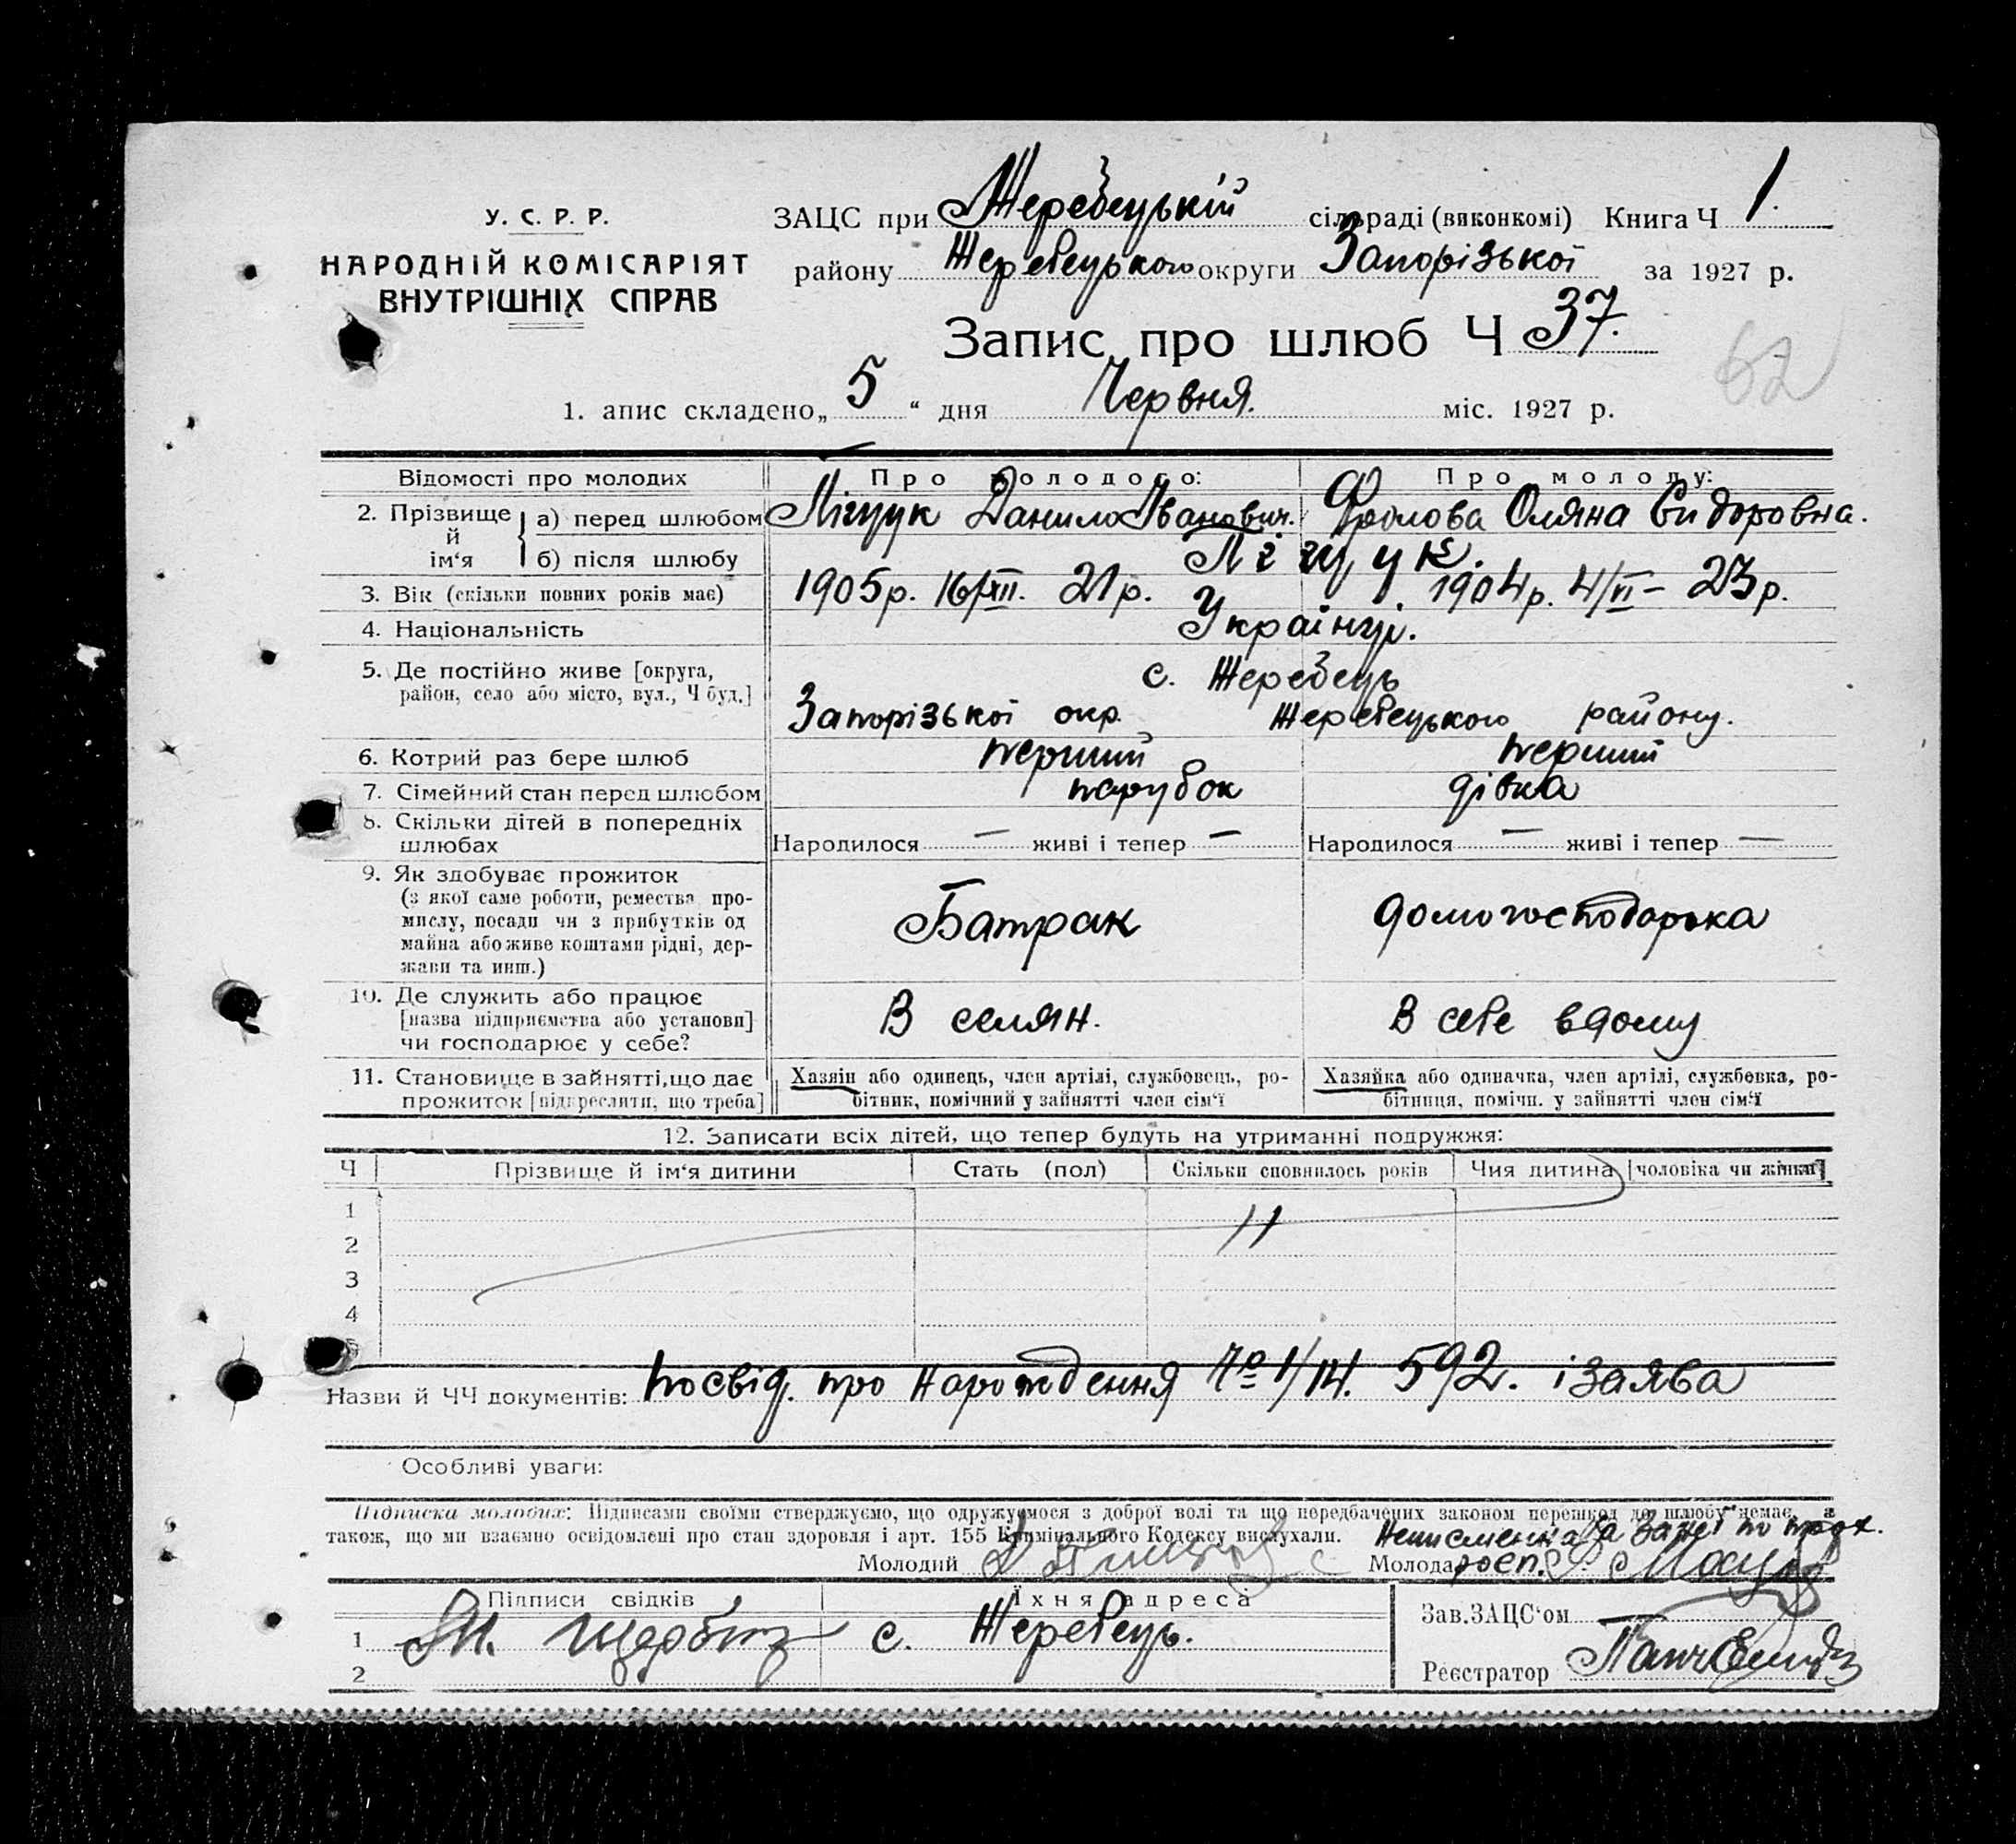 У. С. Р. Р.
НАРОДНІЙ КОМІСАРІЯТ
ВНУТРІШНІХ СПРАВ
ЗАЦС при Жеребецькій сільраді (виконкомі) Книга Ч 1.
району Жеребецького округи Запорізької за 1927 р.
Запис про шлюб Ч 37.
62
1. апис складено „5“ дня Червня. міс. 1927 р.
Відомості про молодих Про молодого: Про молоду:
2. Прізвище й ім‘я а) перед шлюбом Лігуук Данило Іванович. Фролова Оляна Сидоровна.
б) після шлюбу
3. Вік (скільки повних років має) 1905р. 16/XII. 21 р. 1904р. 4/VI – 23 р.
4. Національність Українці.
5. Де постійно живе [округа, район, село або місто, вул., Ч буд.] с. Жеребець
Запорізької окр. Жеребецького району.
6. Котрий раз бере шлюб перший перший
7. Сімейний стан перед шлюбом парубок дівка
8. Скільки дітей в попередніх шлюбах Народилося — живі і тепер — Народилося — живі і тепер —
9. Як здобуває прожиток
(з якої саме роботи, ремества, промислу, посади чи з прибутків од майна або живе коштами рідні, держави та инш.) Батрак домогосподарька
10. Де служить або працює
[назва підприємства або установи]
чи господарює у себе? В селян. В себе вдому
11. Становище в зайнятті, що дає прожиток [підкреслити, що треба] Хазяін або одинець, член артілі, службовець, робітник, помічний у зайнятті член сім‘ї Хазяйка або одиначка, член артілі, службовка, робітниця, помічн. у зайнятті член сім‘ї
12. Записати всіх дітей, що тепер будуть на утриманні подружжя:
Ч Прізвище й ім‘я дитини Стать (пол) Скільки сповнилось років Чия дитина [чоловіка чи жінки]
1
2
3
4
5
Назви й ЧЧ документів: посвід. про народження 592. і заява
Особливі уваги:
Підписка молодих: Підписами своїми стверджуємо, що одружуємося з доброї волі та що передбачених законом перешкод до шлюбу немає, а
також, що ми взаємно освідомлені про стан здоровля і арт. 155 Кримінального Кодексу вислухали. Неписьменна За
Молодий Молода
Підписи свідків Їхня адреса Зав. ЗАЦС‘ом
1 с. Жеребець.
2 Реєстратор